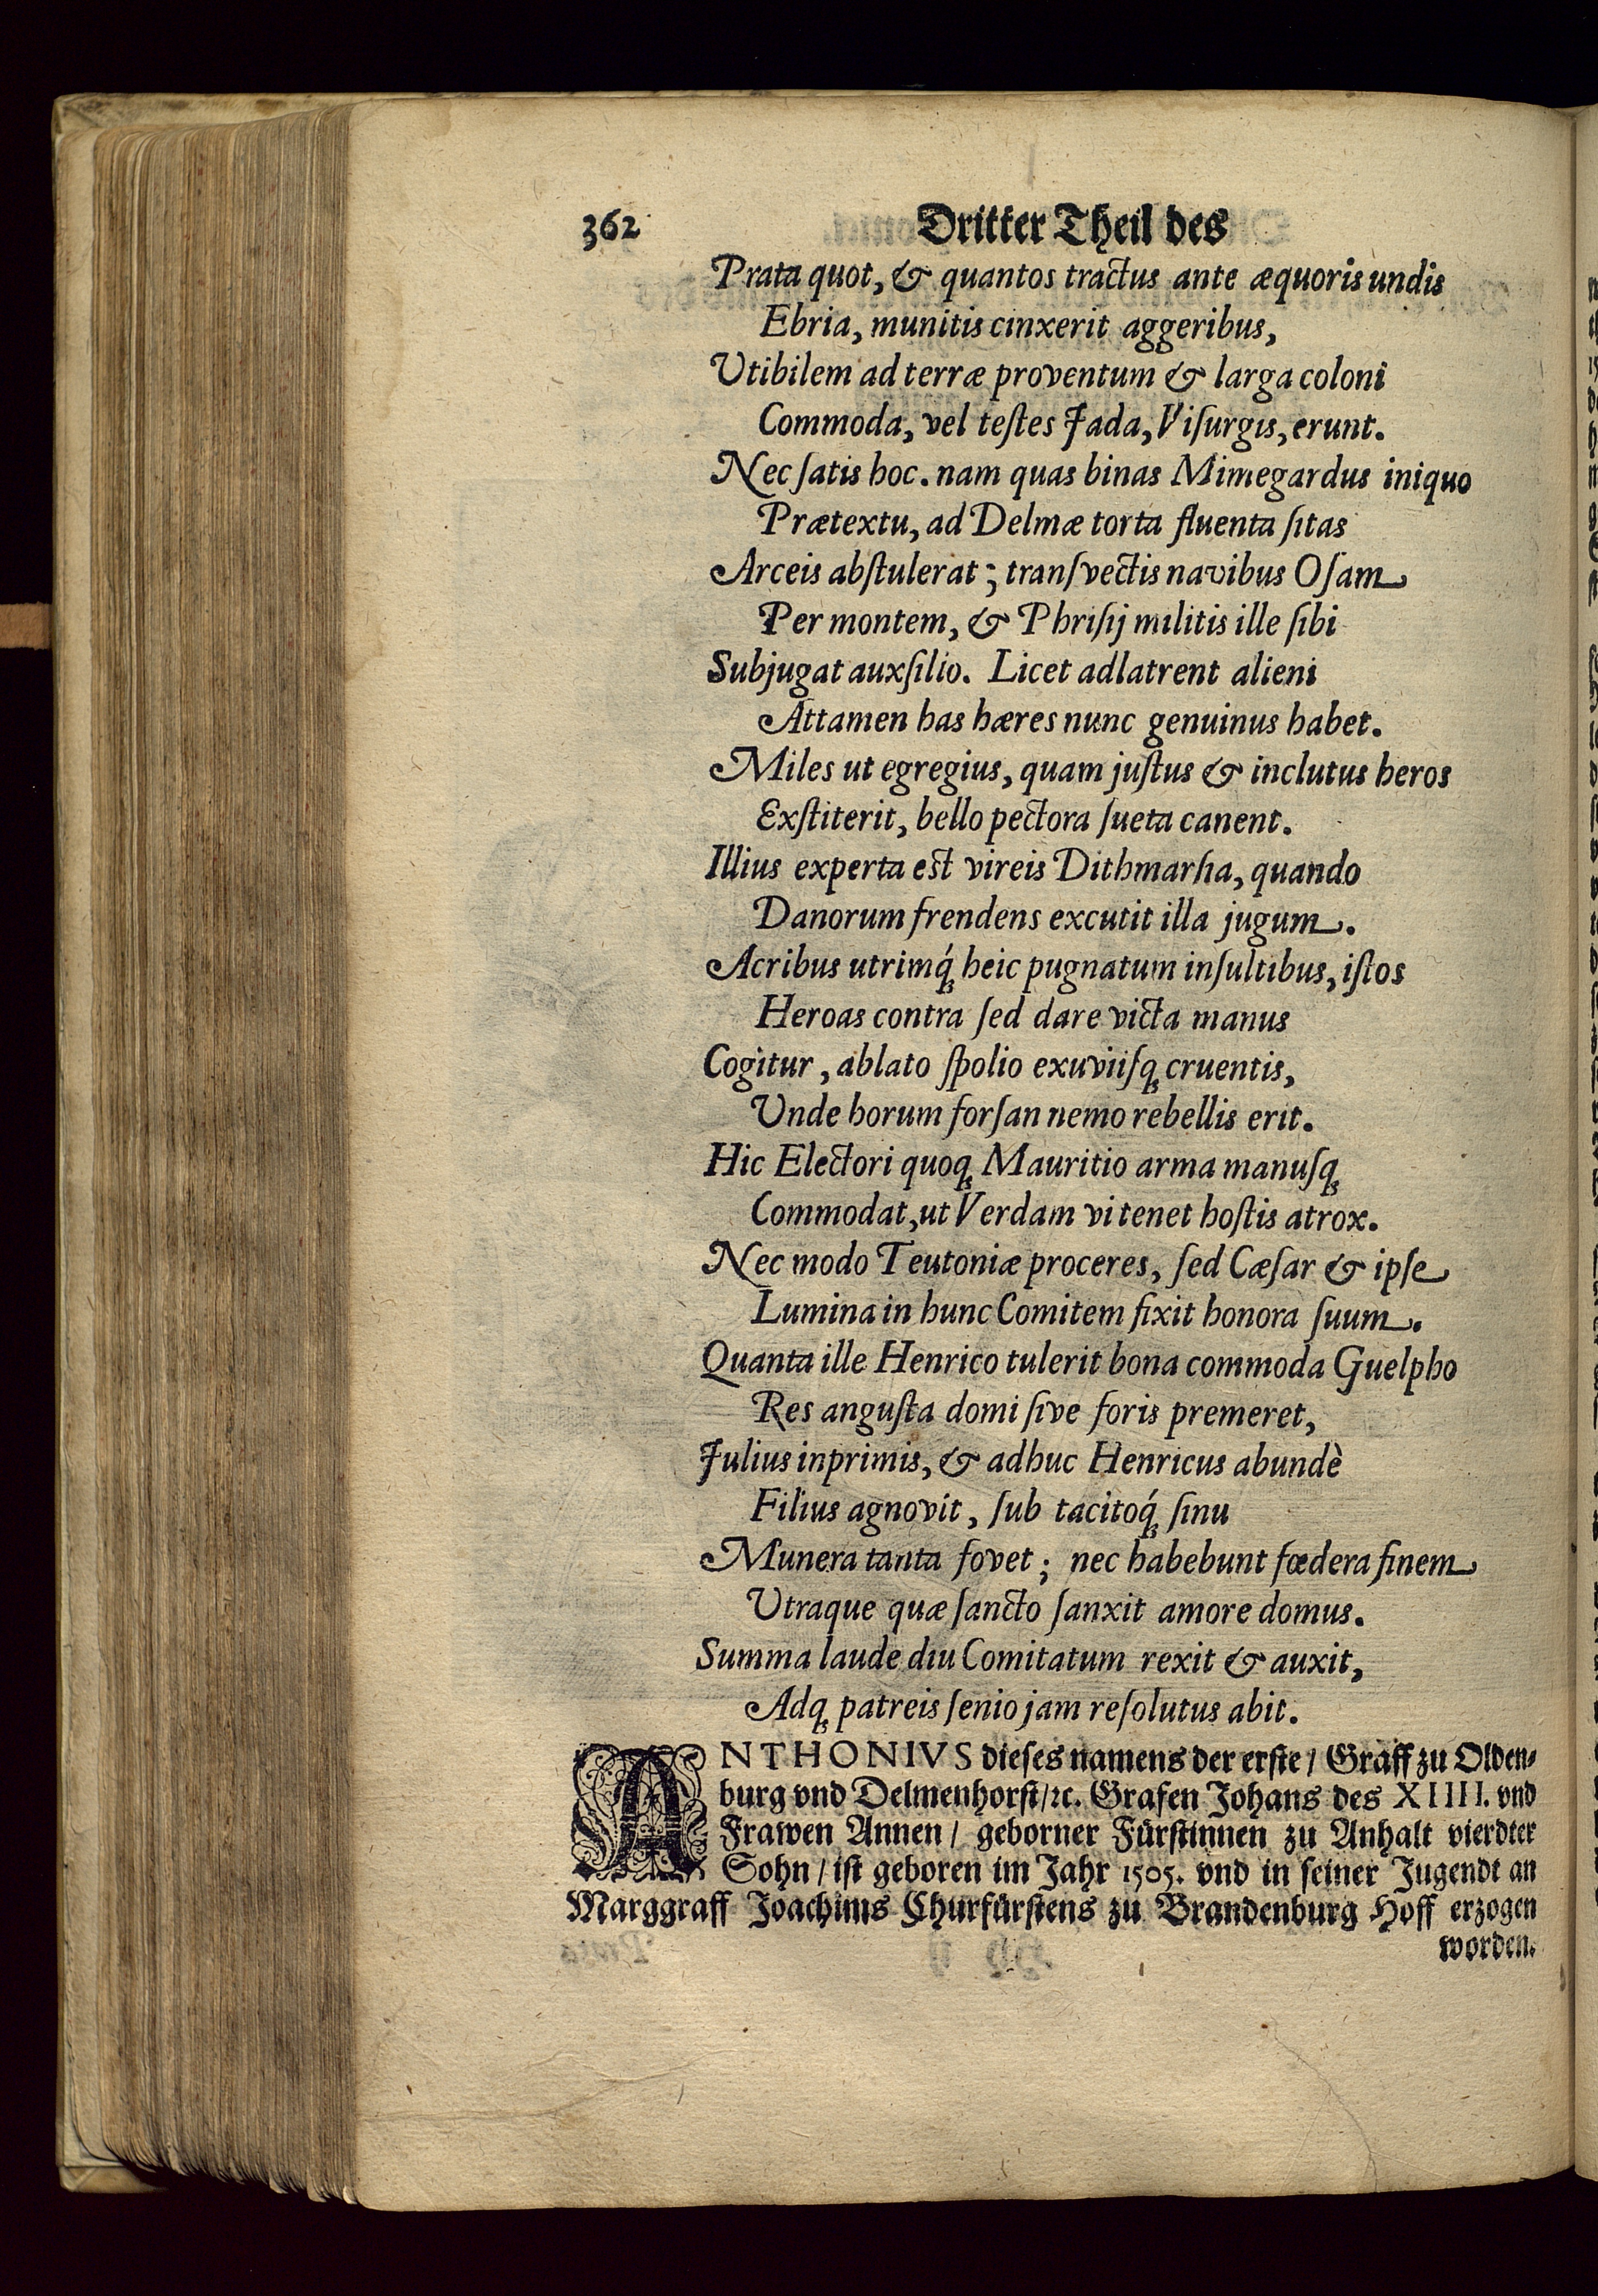 362 Dritter Theil des
Prata quot, & quantos tractus ante æquoris undis
Ebria, munitis cinxerit aggeribus,
Utibilem ad terræ proventum & larga coloni
Commoda, vel teſtes Jada, Viſurgis, erunt.
Nec ſatis hoc. nam quas binas Mimegardus iniquo
Prætextu, ad Delmæ torta fluenta ſitas
Arceis abſtulerat; tranſvectis navibus Oſam
Per montem, & Phriſij militis ille ſibi
Subjugat auxſilio. Licet adlatrent alieni
Attamen has hæres nunc genuinus habet.
Miles ut egregius, quam juſtus & inclutus heros
Exſtiterit, bello pectora ſueta canent.
Illius experta est vireis Dithmarſia, quando
Danorum frendens excutit illa jugum.
Acribus utrimq́; heic pugnatum inſultibus, iſtos
Heroas contra ſed dare victa manus
Cogitur, ablato ſpolio exuviiſq; cruentis,
Unde horum forſan nemo rebellis erit.
Hic Electori quoq; Mauritio arma manuſq;
Commodat, ut Verdam vi tenet hoſtis atrox.
Nec modo Teutoniæ proceres, ſed Cæſar & ipſe
Lumina in hunc Comitem fixit honora ſuum.
Quanta ille Henrico tulerit bona commoda Guelpho
Res anguſta domi ſive foris premeret,
Julius inprimis, & adhuc Henricus abundè
Filius agnovit, ſub tacitoq́; ſinu
Munera tanta fovet; nec habebunt fœdera finem
Utraque quæ ſancto ſanxit amore domus.
Summa laude diu Comitatum rexit & auxit,
Adq; patreis ſenio jam reſolutus abit.
ANTHONIVS dieſes namens der erſte / Graff zu Olden⸗
burg vnd Delmenhorſt / ꝛc. Grafen Johans des XIIII. vnd
Frawen Annen / geborner Fürſtinnen zu Anhalt vierdter
Sohn / iſt geboren im Jahr 1505. vnd in ſeiner Jugendt an
Marggraff Joachims Churfürſtens zu Brandenburg Hoff erzogen
worden.